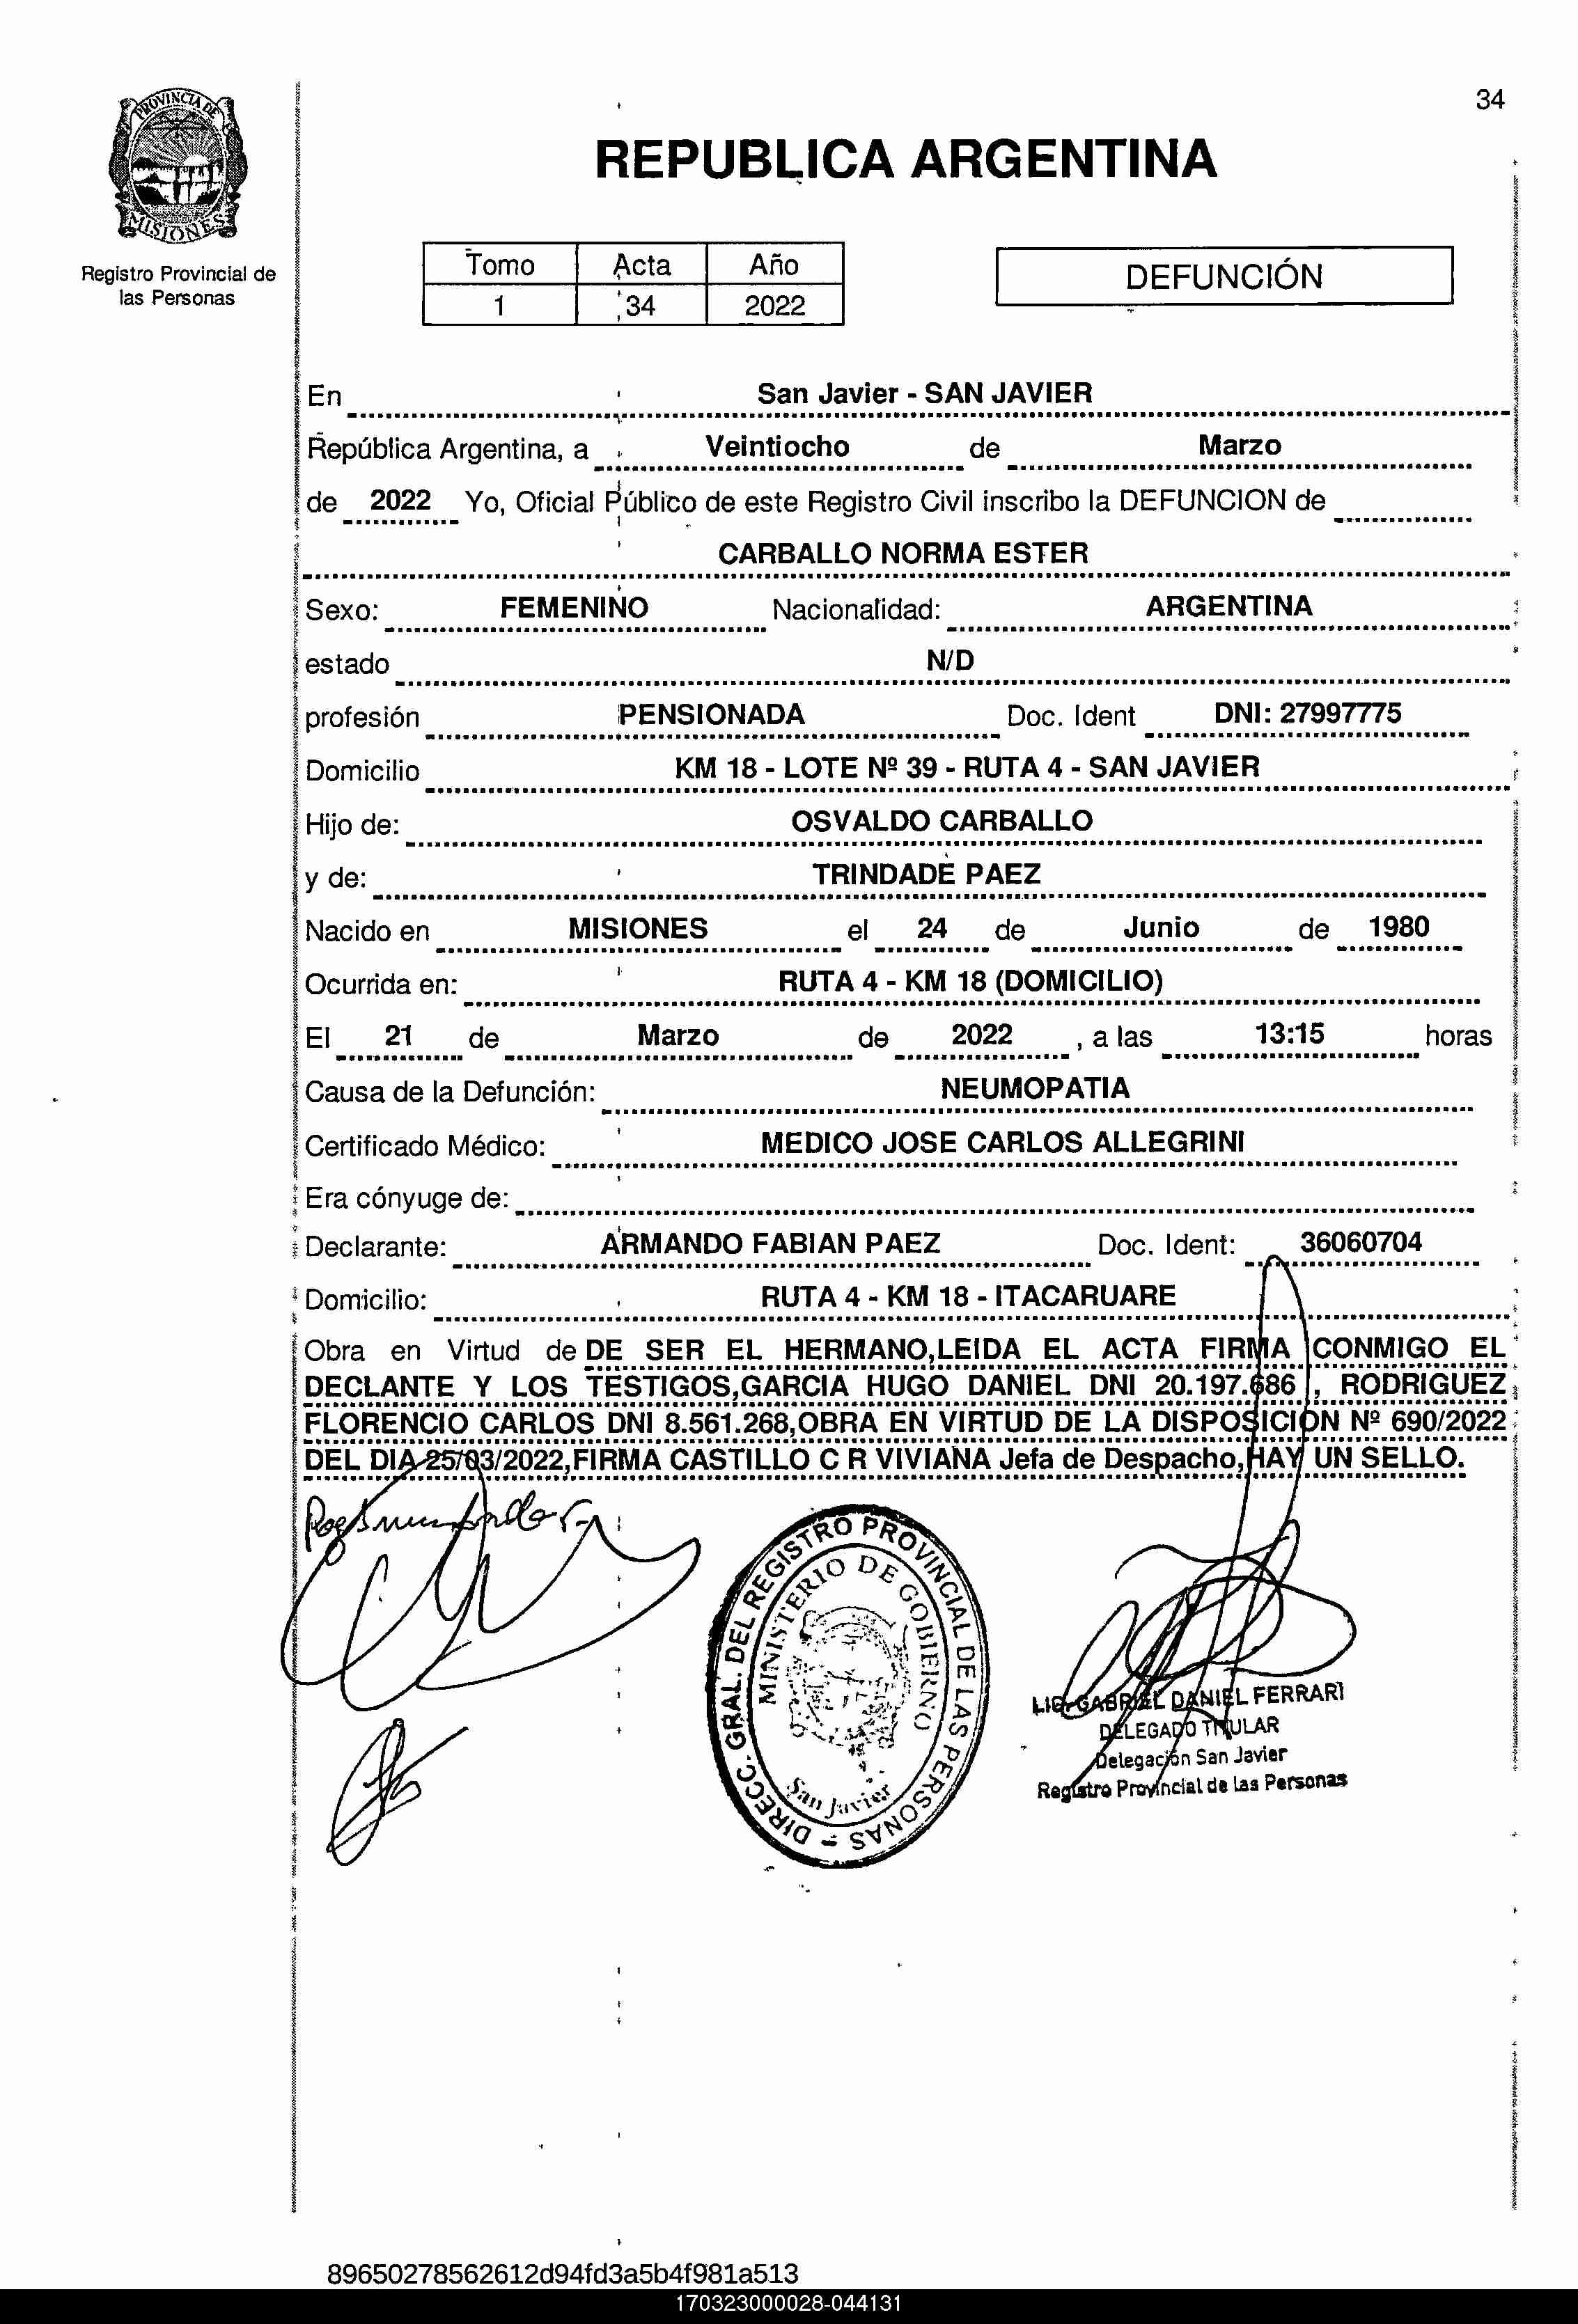 34
PROVINCIA DE
MISIONES
Registro Provincial de
las Personas
REPUBLICA ARGENTINA
Tomo Acta Año
1 34 2022
DEFUNCIÓN
En San Javier - SAN JAVIER
República Argentina, a Veintiocho de Marzo
de 2022 Yo, Oficial Público de este Registro Civil inscribo la DEFUNCION de
CARBALLO NORMA ESTER
Sexo: FEMENINO Nacionalidad: ARGENTINA
estado N/D
profesión PENSIONADA Doc. Ident DNI: 27997775
Domicilio KM 18 - LOTE Nº 39 - RUTA 4 - SAN JAVIER
Hijo de: OSVALDO CARBALLO
y de: TRINDADE PAEZ
Nacido en MISIONES el 24 de Junio de 1980
Ocurrida en: RUTA 4 - KM 18 (DOMICILIO)
El 21 de Marzo de 2022 , a las 13:15 horas
Causa de la Defunción: NEUMOPATIA
Certificado Médico: MEDICO JOSE CARLOS ALLEGRINI
Era cónyuge de:
Declarante: ARMANDO FABIAN PAEZ Doc. Ident: 36060704
Domicilio: RUTA 4 - KM 18 - ITACARUARE
Obra en Virtud de DE SER EL HERMANO,LEIDA EL ACTA FIRMA CONMIGO EL
DECLANTE Y LOS TESTIGOS,GARCIA HUGO DANIEL DNI 20.197.686 , RODRIGUEZ
FLORENCIO CARLOS DNI 8.561.268,OBRA EN VIRTUD DE LA DISPOSICION Nº 690/2022
DEL DIA 25/03/2022,FIRMA CASTILLO C R VIVIANA Jefa de Despacho,HAY UN SELLO.
DIRECC. GRAL. DEL REGISTRO PROVINCIAL DE LAS PERSONAS -
MINISTERIO DE GOBIERNO
San Javier
LIC. GABRIEL DANIEL FERRARI
DELEGADO TITULAR
Delegación San Javier
Registro Provincial de las Personas
89650278562612d94fd3a5b4f981a513
170323000028-044131